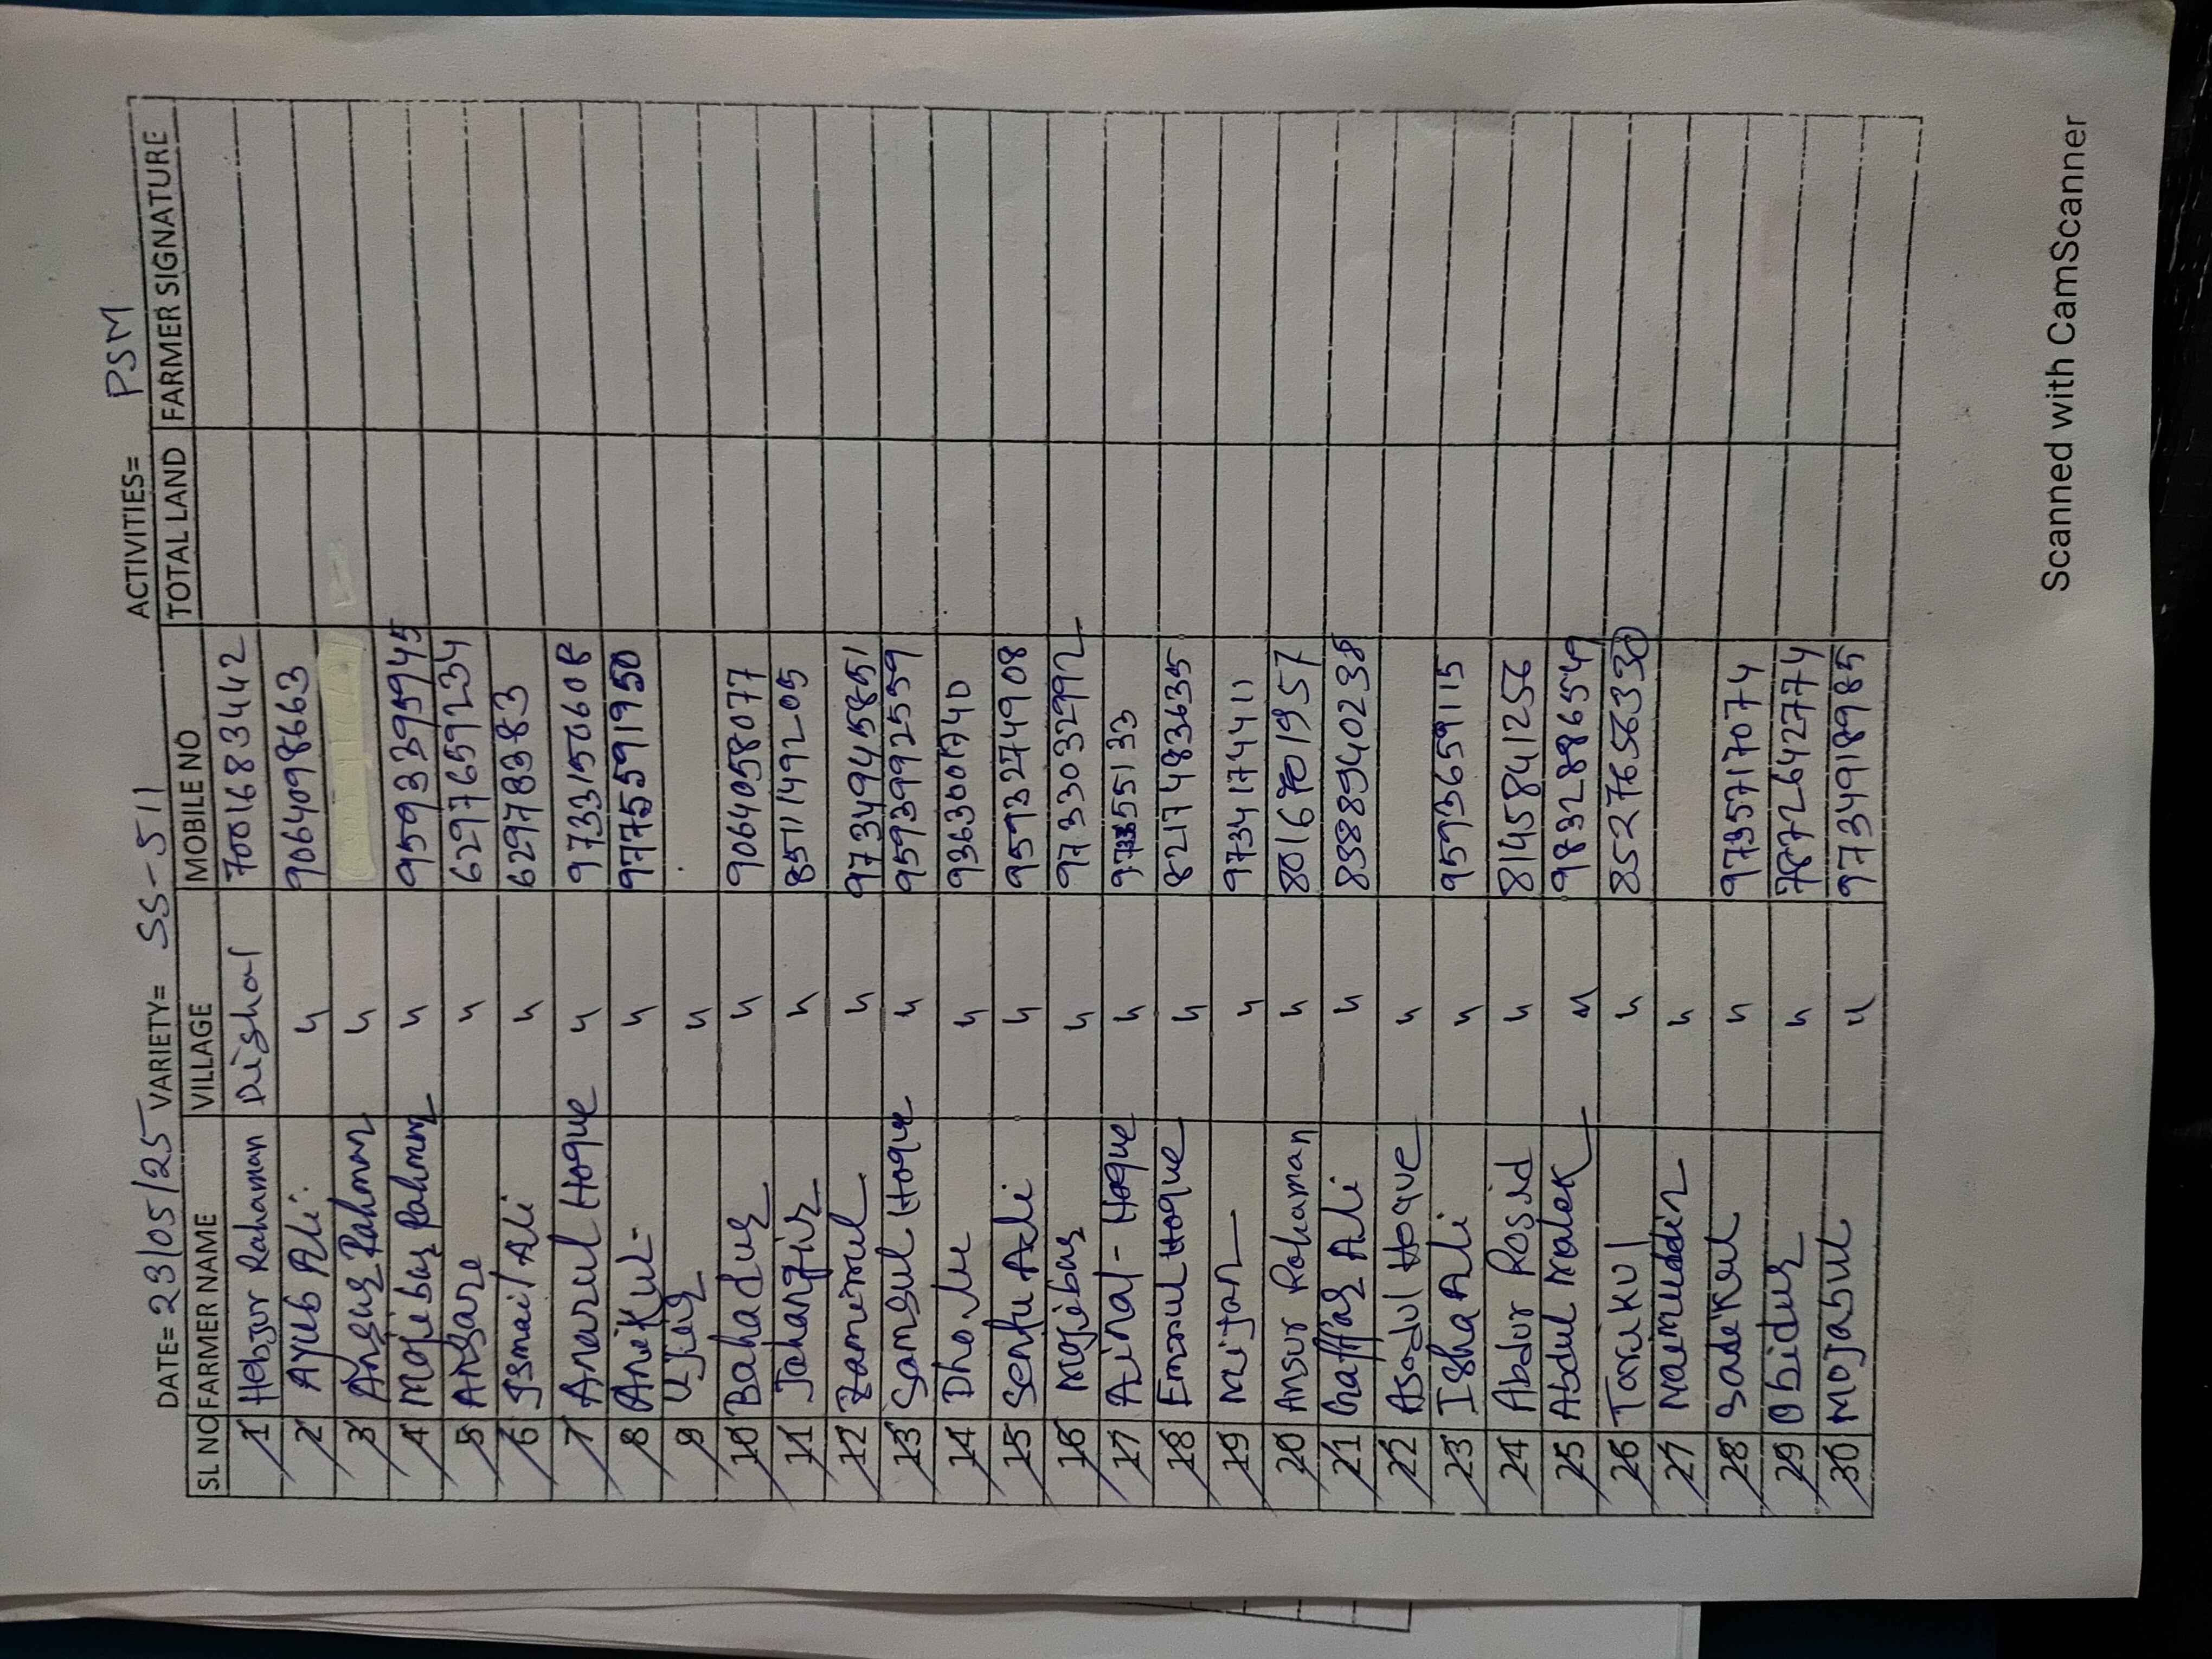 DATE= 23/05/25 VARIETY= SS-511 ACTIVITIES= PSM
SL NO FARMER NAME VILLAGE MOBILE NO TOTAL LAND FARMER SIGNATURE
1 Hebjur Rahaman Dighal 7001683442
2 Ayub Ali 〃 9064098663
3 Angur Rahman 〃
4 Mojibar Rahman 〃 9593395945
5 Angare 〃 6297659234
6 Ismail Ali 〃 629783383
7 Anarul Hoque 〃 9733150608
8 Anikul- 〃 9775591950
9 Ujir 〃
10 Bahadur 〃 9064058077
11 Jahangir 〃 8511492205
12 Zamirul 〃 9734945851
13 Samsul Hoque 〃 9593992559
14 Dholu 〃 9363001740
15 Sentu Ali 〃 9593274908
16 Mojibar 〃 9733032992
17 Ainal- Hoque 〃 55133
18 Emul Hoque 〃 8217483635
19 Mijan 〃 9734174411
20 Ansur Rohaman 〃 8016701957
21 Gaffar Ali 〃 8388940238
22 Asadul Hoque 〃
23 Isha Ali 〃 9593659115
24 Abdur Rosid 〃 8145841256
25 Abdul Malek 〃 9832886549
26 Tarikul 〃 8527656330
27 Naimuddin 〃
28 Sadikul 〃 9735717074
29 Obidur 〃 7872642774
30 Mojabul 〃 9734918985
Scanned with CamScanner